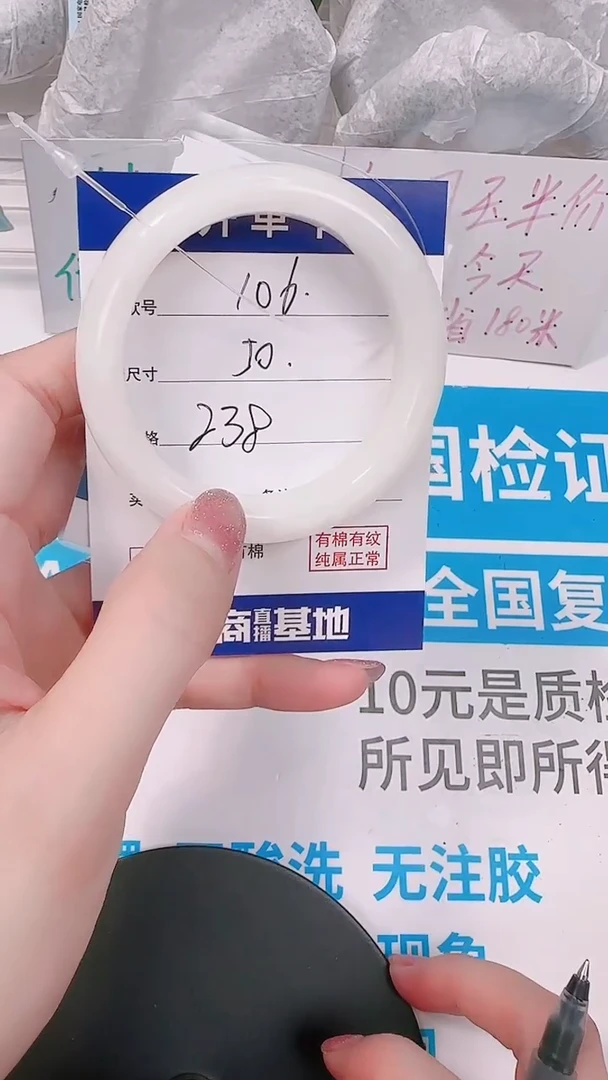 开单卡
款号 106.
尺寸 50.
238
有棉有纹
纯属正常
商直播基地
玉半价
今天
省180米
国检证
全国复
10元是质检
所见即所得
酸洗 无注胶
现象